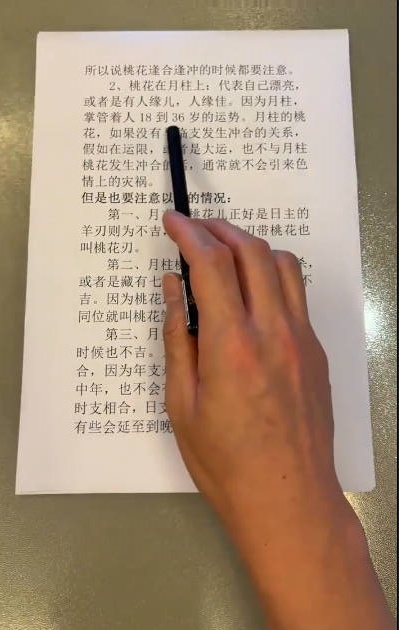 所以说桃花逢合逢冲的时候都要注意。
2、桃花在月柱上：代表自己漂亮，
或者是有人缘儿，人缘佳。因为月柱，
掌管着人 18 到 36 岁的运势。月柱的桃
花，如果没有 支发生冲合的关系，
假如在运限， 是大运，也不与月柱
桃花发生冲合 ，通常就不会引来色
情上的灾祸。
但是也要注意以 的情况：
第一、月 桃花儿正好是日主的
羊刃则为不吉， 刃带桃花也
叫桃花刃。
第二、月柱 杀，
或者是藏有七 不
吉。因为桃花
同位就叫桃花
第三、月
时候也不吉。
合，因为年支
中年，也不会
时支相合，日支
有些会延至到晚